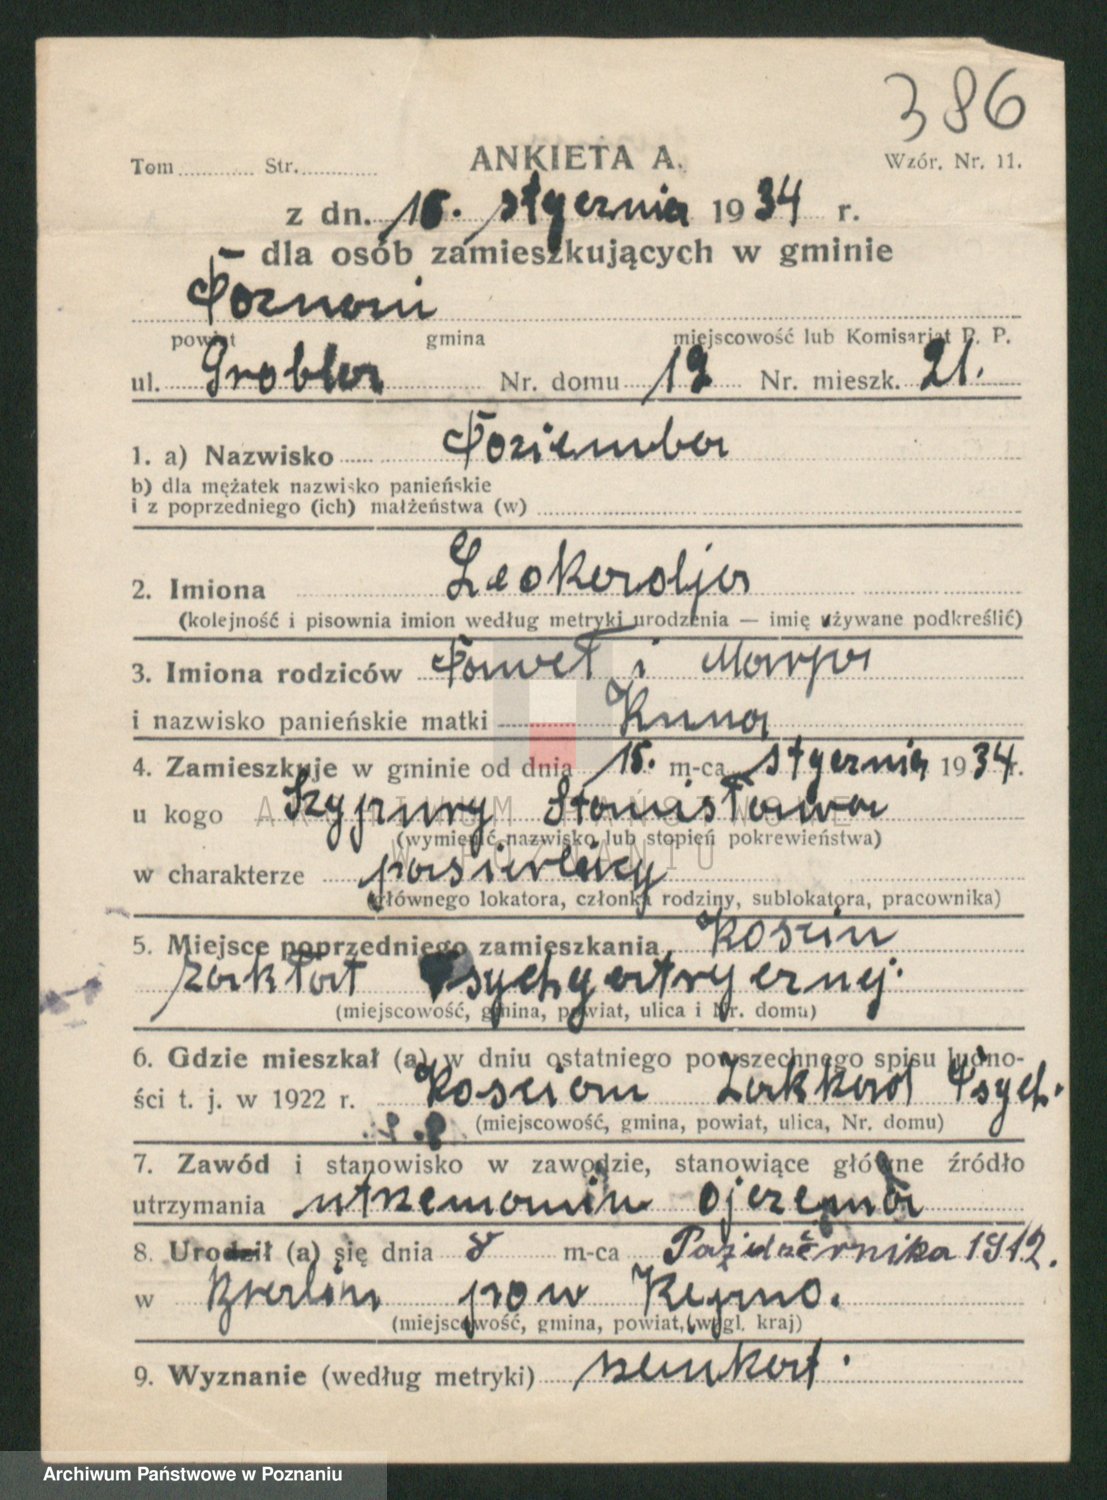 386
Tom Str. ANKIETA A. Wzór. Nr. 11.
z dn. 15. stycznia 1934 r.
dla osób zamieszkujących w gminie
Poznań
powiat gmina miejscowość lub Komisariat P. P.
ul. Grobla Nr. domu 12 Nr. mieszk. 21.
1. a) Nazwisko Poziemba
b) dla mężatek nazwisko panieńskie
i z poprzedniego (ich) małżeństwa (w)
2. Imiona Leokardja
(kolejność i pisownia imion według metryki urodzenia — imię używane podkreślić)
3. Imiona rodziców Paweł i Marja
i nazwisko panieńskie matki Kuna
4. Zamieszkuje w gminie od dnia 15. m-ca stycznia 1934 r.
u kogo Stanisława
(wymienić nazwisko lub stopień pokrewieństwa)
w charakterze pasierbicy
głównego lokatora, członka rodziny, sublokatora, pracownika)
ARCHIWUM PAŃSTWOWE
W POZNANIU
5. Miejsce poprzedniego zamieszkania
zakłat Psychyatrycznej.
(miejscowość, gmina, powiat, ulica i Nr. domu)
6. Gdzie mieszkał (a) w dniu ostatniego powszechnego spisu ludno-
ści t. j. w 1922 r. Kościan Zakkad Psych.
(miejscowość, gmina, powiat, ulica, Nr. domu)
7. Zawód i stanowisko w zawodzie, stanowiące główne źródło
utrzymania
8. Urodził (a) się dnia 8 m-ca Października 1912.
w pow Kempno.
(miejscowość, gmina, powiat, wzgl. kraj)
9. Wyznanie (według metryki)
Archiwum Państwowe w Poznaniu